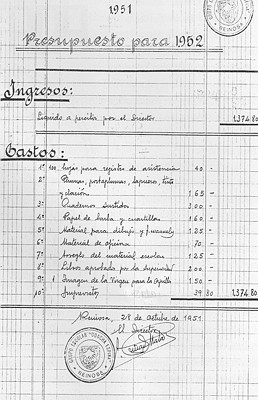 1951
REINOSA
Presupuesto para 1952
Ingresos:
Líquido a percibir por el Director 1.374 80
Gastos:
1º 100 hojas para registro de asistencia 40 -
2º Plumas, portaplumas, lapiceros, tinta
y clarión 165 -
3º Cuadernos surtidos 300 -
4º Papel de barba y cuartillas 160 -
5º Material para dibujo y f. manuals 125 -
6º Material de oficina 70 -
7º Arreglo del material escolar 125 -
8º Libros aprobados por la Superioridad 200 -
9º 1 Imagen de la Virgen para la Capilla 150 -
10º Imprevistos 39 80 1.374 80
Reinosa, 28 de Octubre de 1951
El Director
GRUPO ESCOLAR "CONCHA ESPINA"
REINOSA